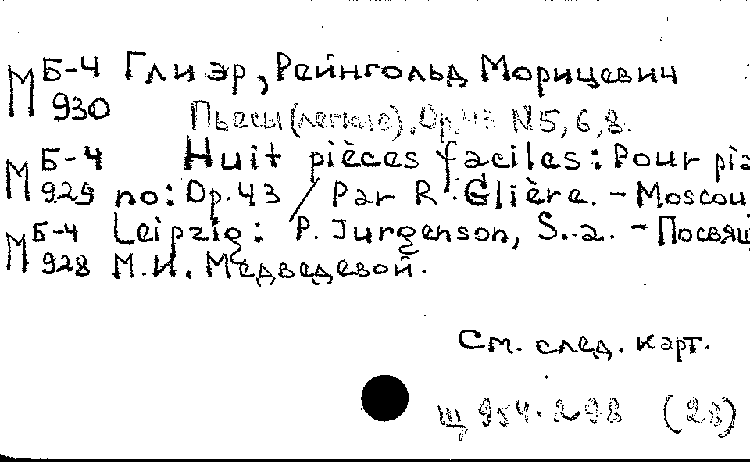 М Б-4 930 Глиэр, Рейнгольд Морицевич
Пьесы (легкие). Op.43 N5,6,8.
М Б-4 929 Huit pièces faciles: Pour pia
no: Op.43 / Par R. Glière. - Moscou
М Б-4 928 Leipzig: P. Jurgenson, S.a. - Посвящ
М.И. Медведевой.
См. след. карт.
Щ 954.298 (28)